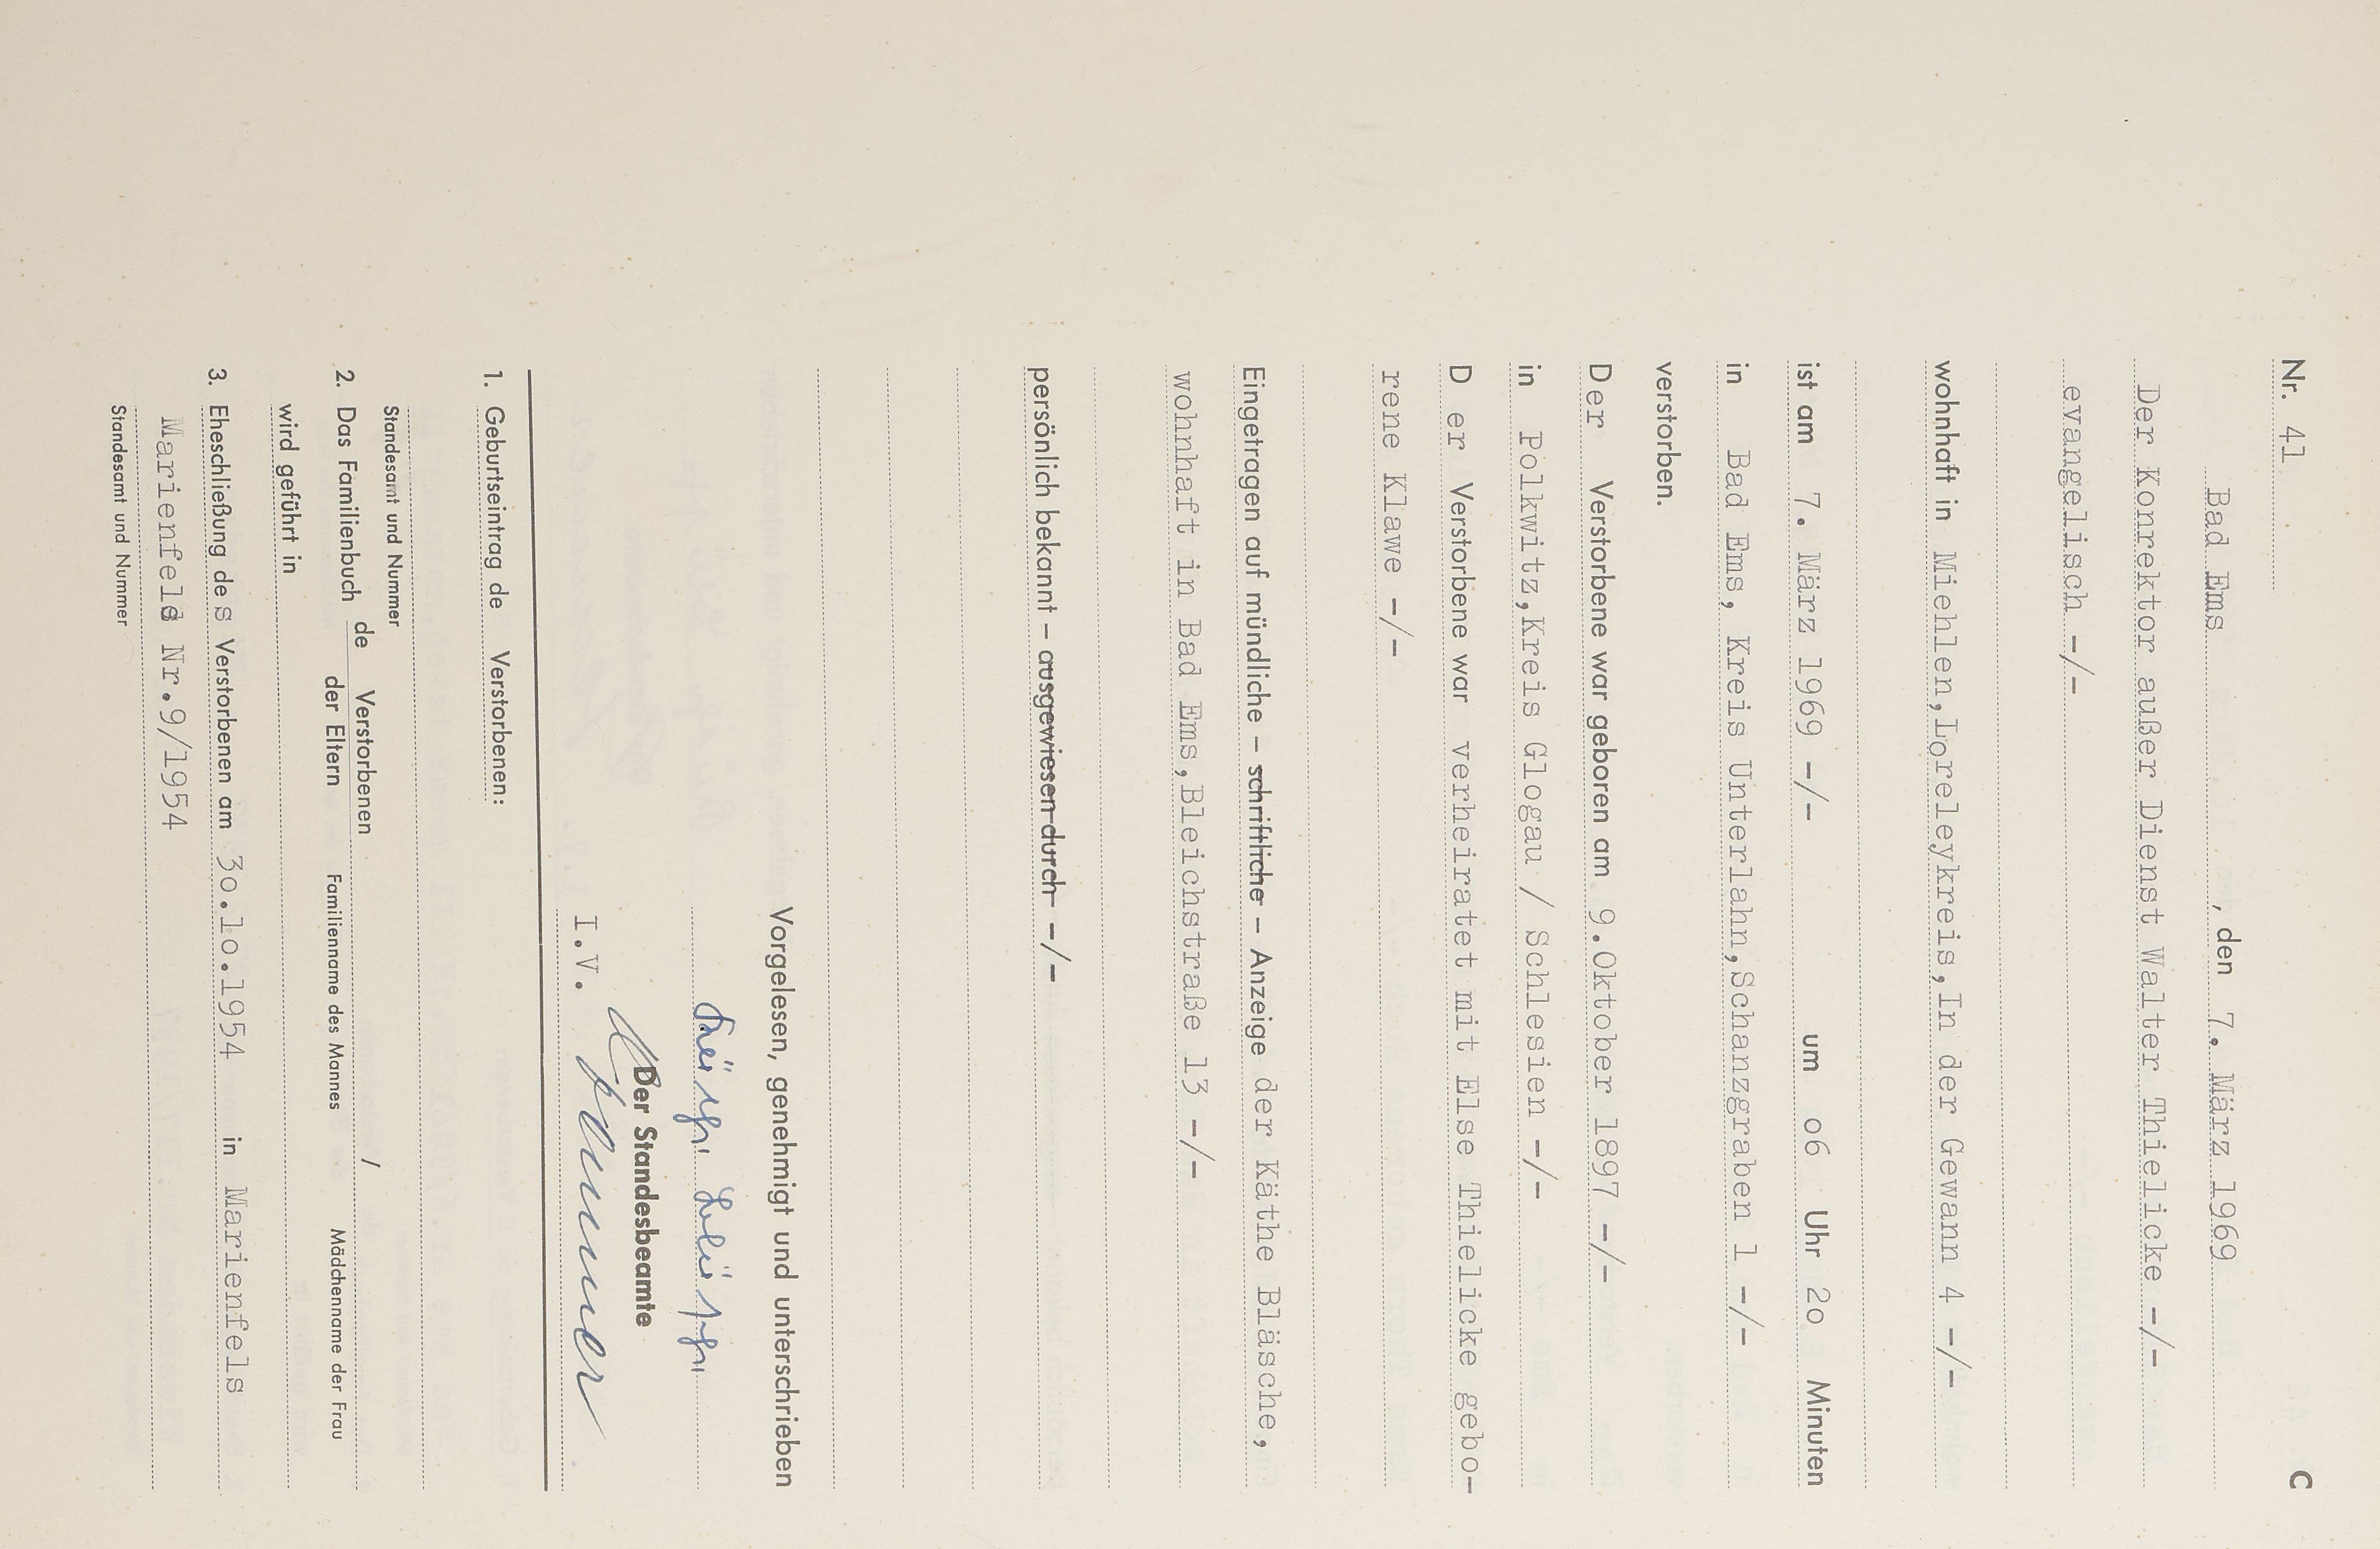 Nr. 41 C
Bad Ems, den 7. März 1969
Der Konrektor außer Dienst Walter Thielicke -/-
evangelisch -/-
wohnhaft in Miehlen,Loreleykreis,In der Gewann 4 -/-
ist am 7. März 1969 -/- um o6 Uhr 2o Minuten
in Bad Ems, Kreis Unterlahn,Schanzgraben 1 -/-
verstorben.
Der Verstorbene war geboren am 9.Oktober 1897 -/-
in Polkwitz,Kreis Glogau / Schlesien -/-
D er Verstorbene war verheiratet mit Else Thielicke gebo-
rene Klawe -/-
Eingetragen auf mündliche – schriftliche – Anzeige der Käthe Bläsche,
wohnhaft in Bad Ems,Bleichstraße 13 -/-
persönlich bekannt – ausgewiesen durch -/-
Vorgelesen, genehmigt und unterschrieben
Käthe Bläsche
Der Standesbeamte
I.V.
1. Geburtseintrag de Verstorbenen:
Standesamt und Nummer
2. Das Familienbuch de Verstorbenen /
der Eltern Familienname des Mannes Mädchenname der Frau
wird geführt in
3. Eheschließung des Verstorbenen am 3o.1o.1954 in Marienfels
Marienfeld Nr.9/1954
Standesamt und Nummer